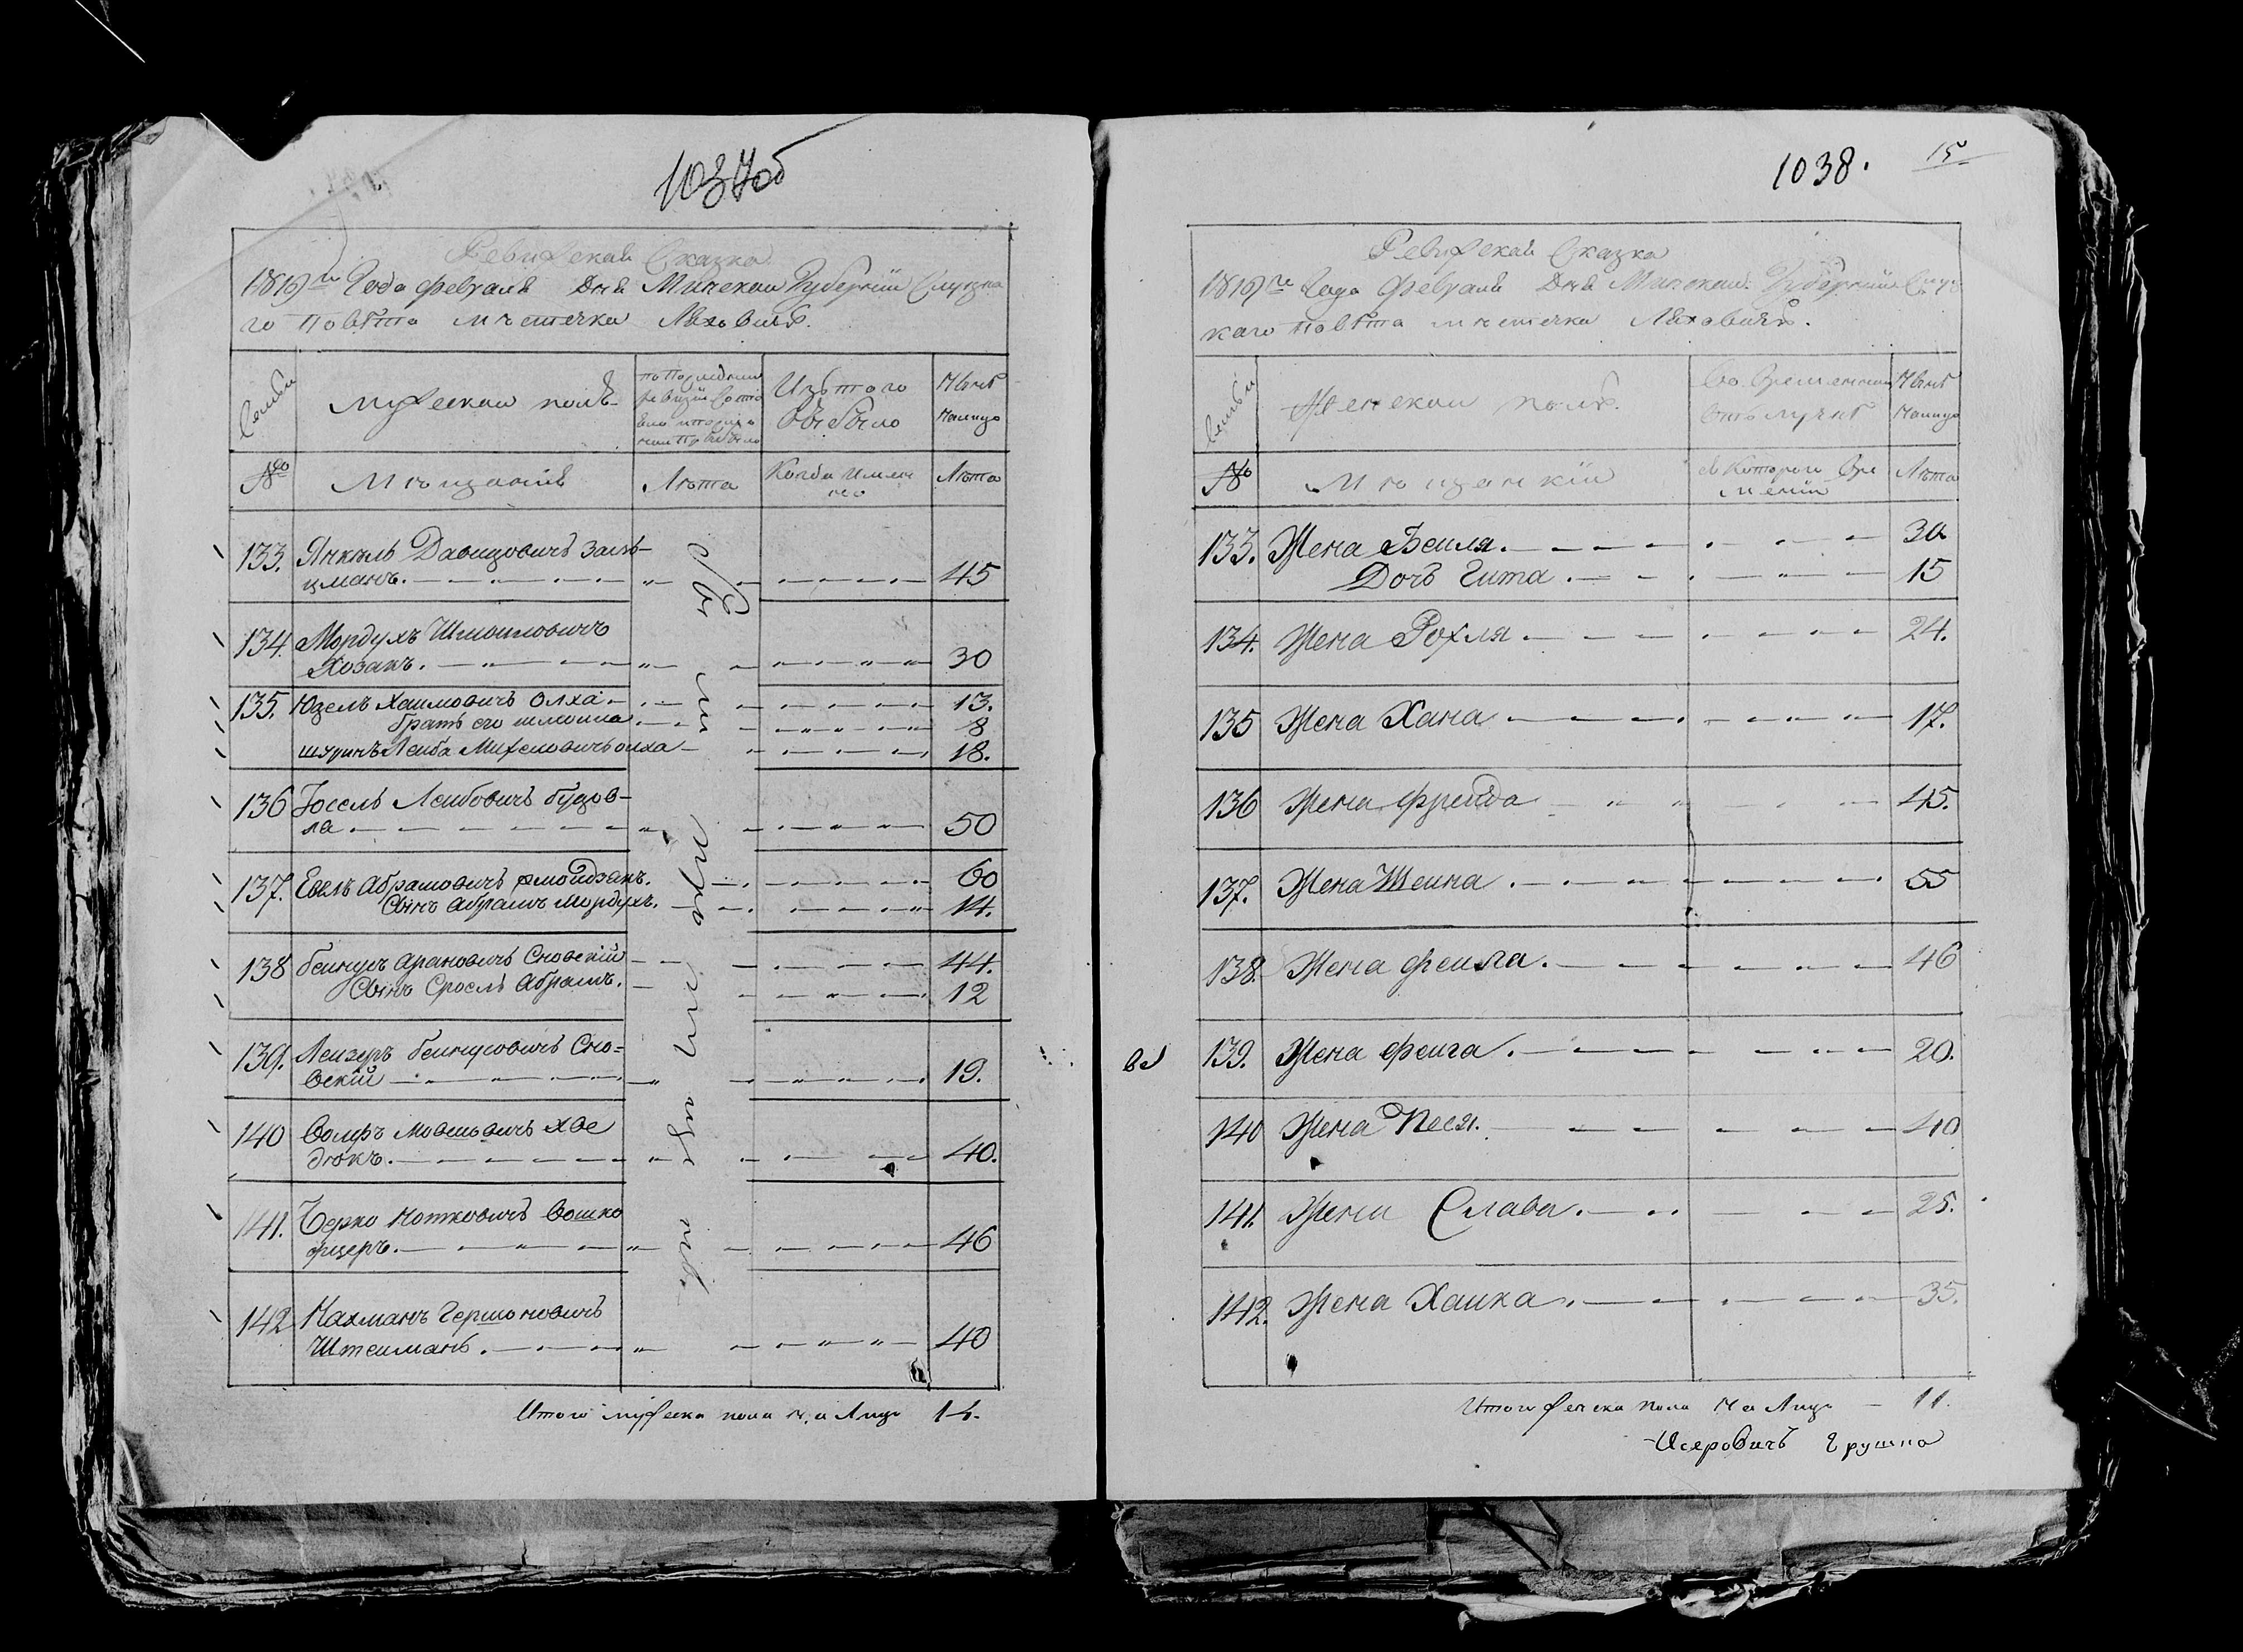 1037об
Ревижская Сказка
1819го Года февраля Дня Минской Губернии Слуцка
го повѣта мѣстечка Ляховичъ.
Семьи
Мужескои полъ
Изъ того
выбыло
Нынѣ
налицо
№
Мѣщаніе
Лѣта
Когда имен
но
Лѣта
133. Янкель Давидовичъ Залъ-
цманъ. 45
134. Мордухъ Шмоиловичъ
Хозанъ. 30
135. Юдель Хаимовичъ Олха 13.
братъ его шлиома 8
шуринъ Леиба Михелевичъ олха 18.
136 Іосель Леибовичъ будов-
ла 50
137. Евель Абрамовичъ 60
Сынъ Абрамъ Мордухъ. 14.
138 беинусъ Арановичъ Сновскій 44.
Сынъ Сроель Абрамъ. 12
139. Леизеръ беинусовичъ Сно=
вскій 19.
140 Волфъ Мовшовичъ хве
дюкъ. 40.
141. Берко Нотковичъ Вошко
46
142 Нахманъ Гершоновичъ
Штеиманъ. 40
Итого мужеска пола на Лицо 14.
1038. 15
Ревижская Сказка
1819го Года Февраля Дня Минской Губернии Слуц
каго повѣта мѣстечка Ляховичъ.
Семьи
Женскои полъ.
Во временнои
отлучкѣ
Нынѣ
налицо
№
Мѣщанкіи
съ Котораго Вре
мении
Лѣта
133. Жена Беиля. 30
Дочь Гита. 15
134. Жена Рохля 24.
135 Жена Хана 17.
136 Жена фреида 45.
137. Жена Шеина. 55
138. Жена феила. 46
139. Жена феига. 20.
140 Жена Песя. 40
141. Жена Слава. 25.
142. Жена Хаика. 35.
Итого женска пола На Лицо 11.
Исеровичъ Грушка